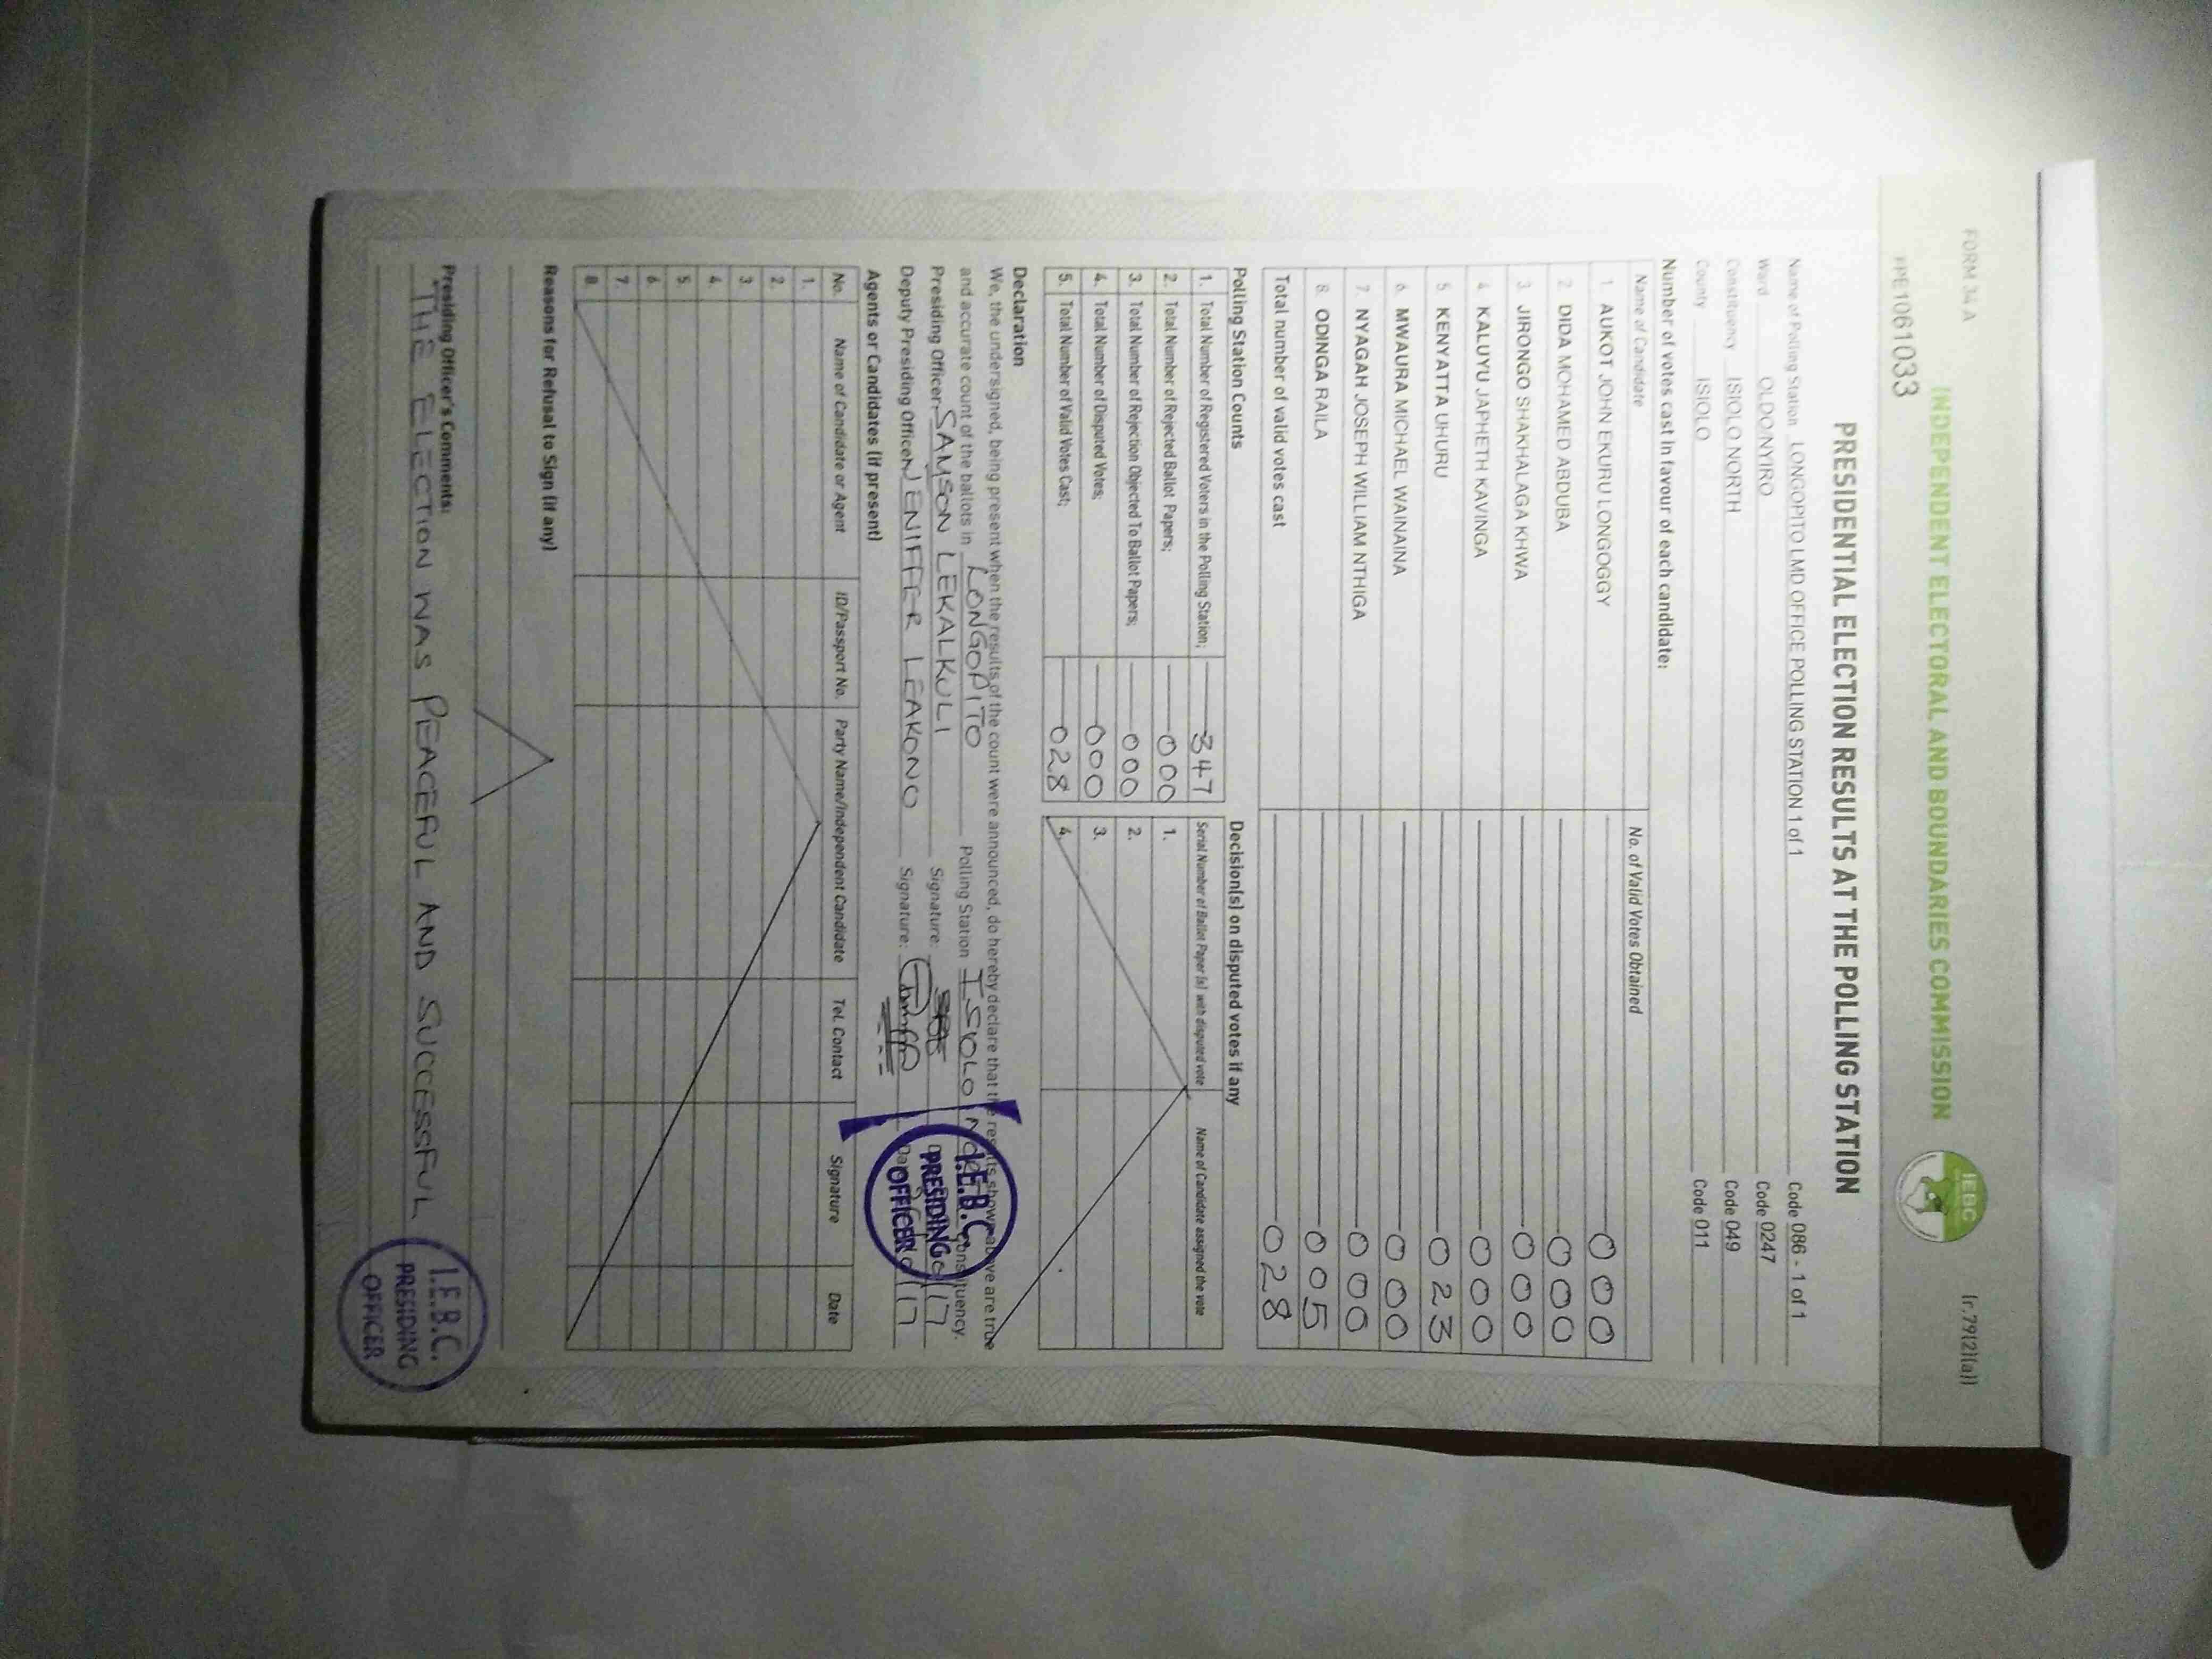 FORM 34A (r.79(2)(a))
INDEPENDENT ELECTORAL AND BOUNDARIES COMMISSION
IEBC
FPE1061033
PRESIDENTIAL ELECTION RESULTS AT THE POLLING STATION
Name of Polling Station LONGOPITO LMD OFFICE POLLING STATION 1 of 1 Code 086 - 1 of 1
Ward OLDO/NYIRO Code 0247
Constituency ISIOLO NORTH Code 049
County ISIOLO Code 011
Number of votes cast in favour of each candidate:
Name of Candidate No. of Valid Votes Obtained
1. AUKOT JOHN EKURU LONGOGGY 000
2. DIDA MOHAMED ABDUBA 000
3. JIRONGO SHAKHALAGA KHWA 000
4. KALUYU JAPHETH KAVINGA 000
5. KENYATTA UHURU 023
6. MWAURA MICHAEL WAINAINA 000
7. NYAGAH JOSEPH WILLIAM NTHIGA 000
8. ODINGA RAILA 005
Total number of valid votes cast 028
Polling Station Counts Decision(s) on disputed votes if any
1. Total Number of Registered Voters in the Polling Station; 347 Serial Number of Ballot Paper (s) with disputed vote Name of Candidate assigned the vote
2. Total Number of Rejected Ballot Papers; 000 1.
3. Total Number of Rejection Objected To Ballot Papers; 000 2.
4. Total Number of Disputed Votes; 000 3.
5. Total Number of Valid Votes Cast; 028 4.
Declaration
We, the undersigned, being present when the results of the count were announced, do hereby declare that the results shown above are true
and accurate count of the ballots in LONGOPITO Polling Station ISIOLO Constituency.
Presiding Officer: SAMSON LEKALKULI Signature:
Deputy Presiding Officer JENIFFER LEAKONO Signature:
I.E.B.C. PRESIDING OFFICER
Agents or Candidates (if present)
No. Name of Candidate or Agent ID/Passport No. Party Name/Independent Candidate Tel. Contact Signature Date
1.
2.
3.
4.
5.
6.
7.
8.
Reasons for Refusal to Sign (if any)
Presiding Officer's Comments:
THE ELECTION WAS PEACEFUL AND SUCCESSFUL
I.E.B.C.
PRESIDING
OFFICER